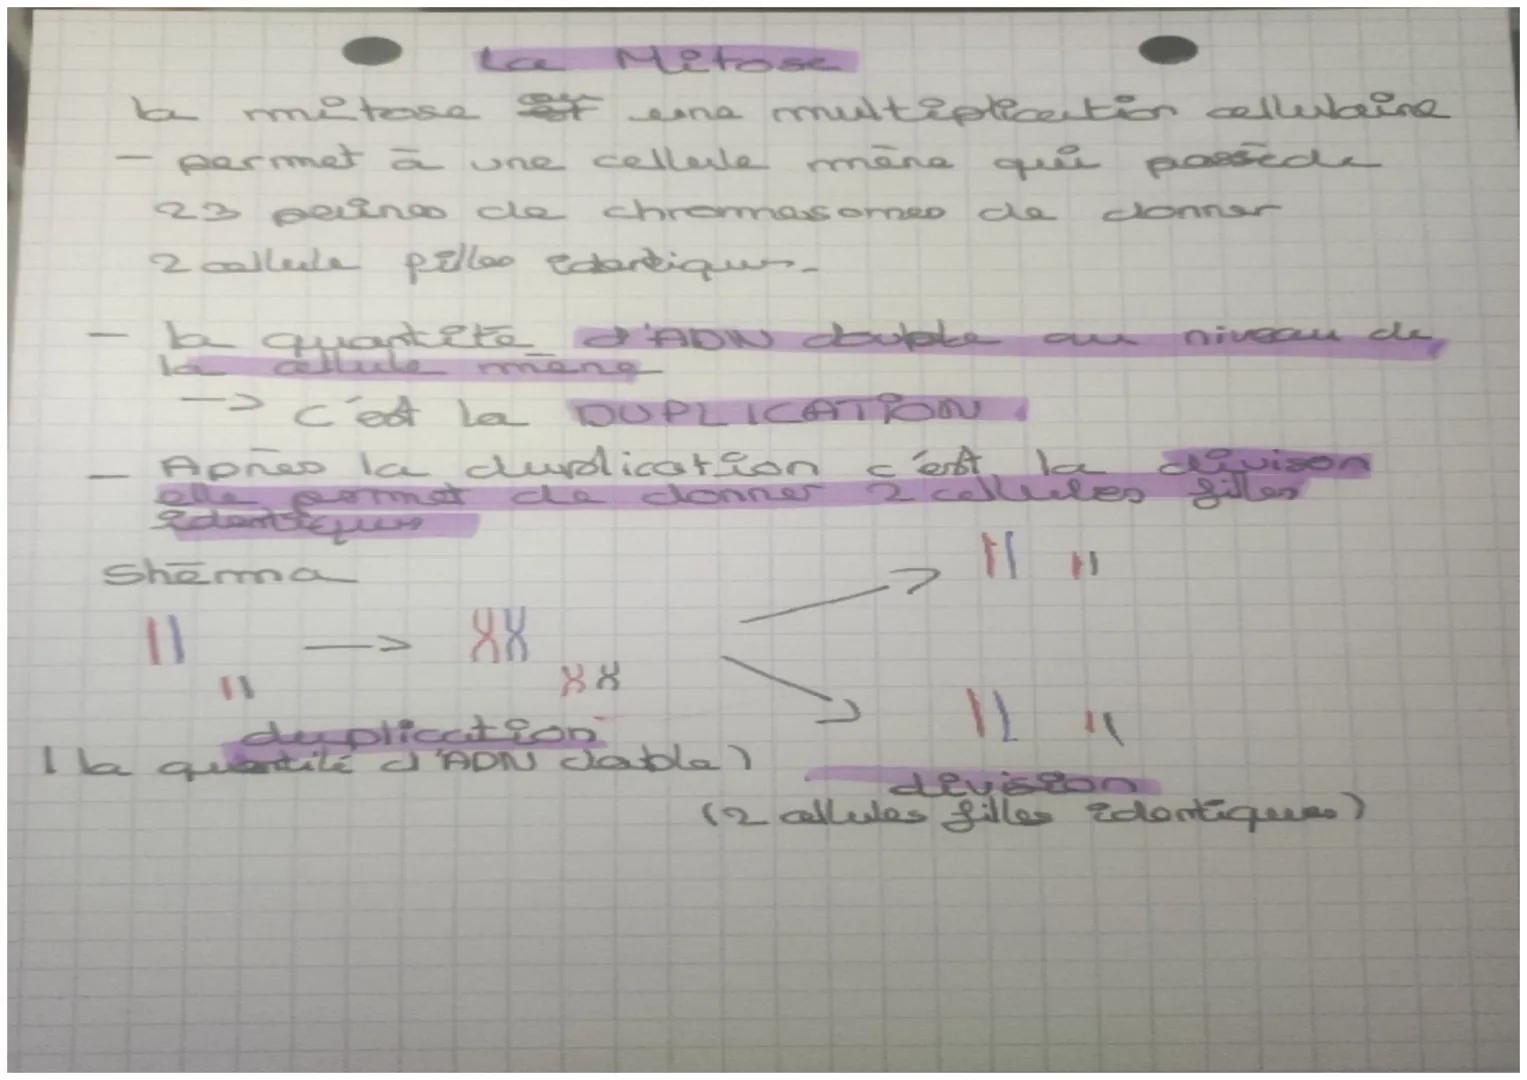 La Mitose
la mitose est une multiplication cellulaire
- permet à une cellule mère qui possède
23 paires de chromosomes de donner
2 cellule filles identiques.
- la quantité d'ADN double au niveau de
la cellule mère
-> c'est la DUPLICATION
- Après la duplication c'est la divison
elle permet de donner 2 cellules filles
identiques
Shéma
duplication
(la quantité d'ADN double)
division
(2 cellules filles identiques)